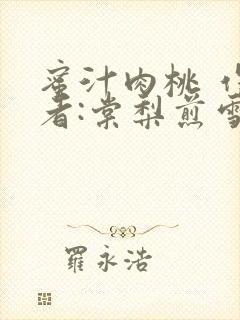 蜜汁肉桃 作
者:棠梨煎雪
羅永浩